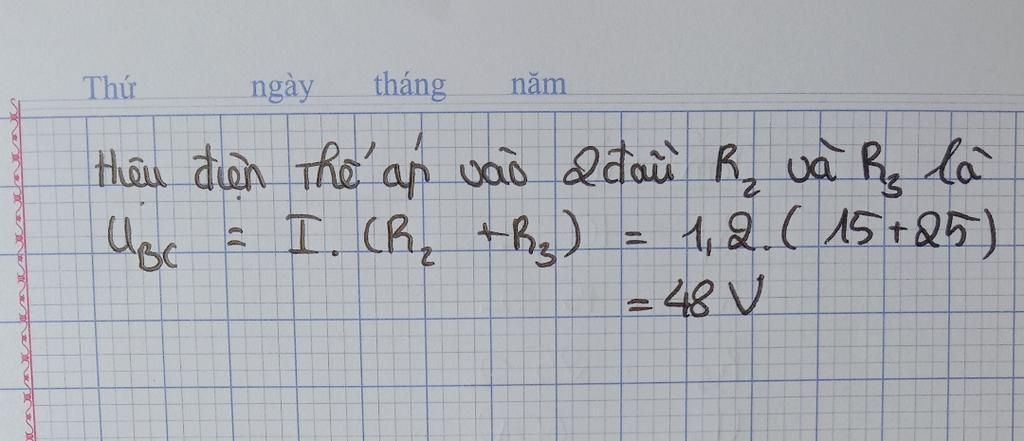 Thứ ngày tháng năm
Hiệu điện thế áp vào 2 đầu R₂ và R₃ là
U_BC = I. (R₂ + R₃) = 1,2. ( 15 + 25)
= 48 V